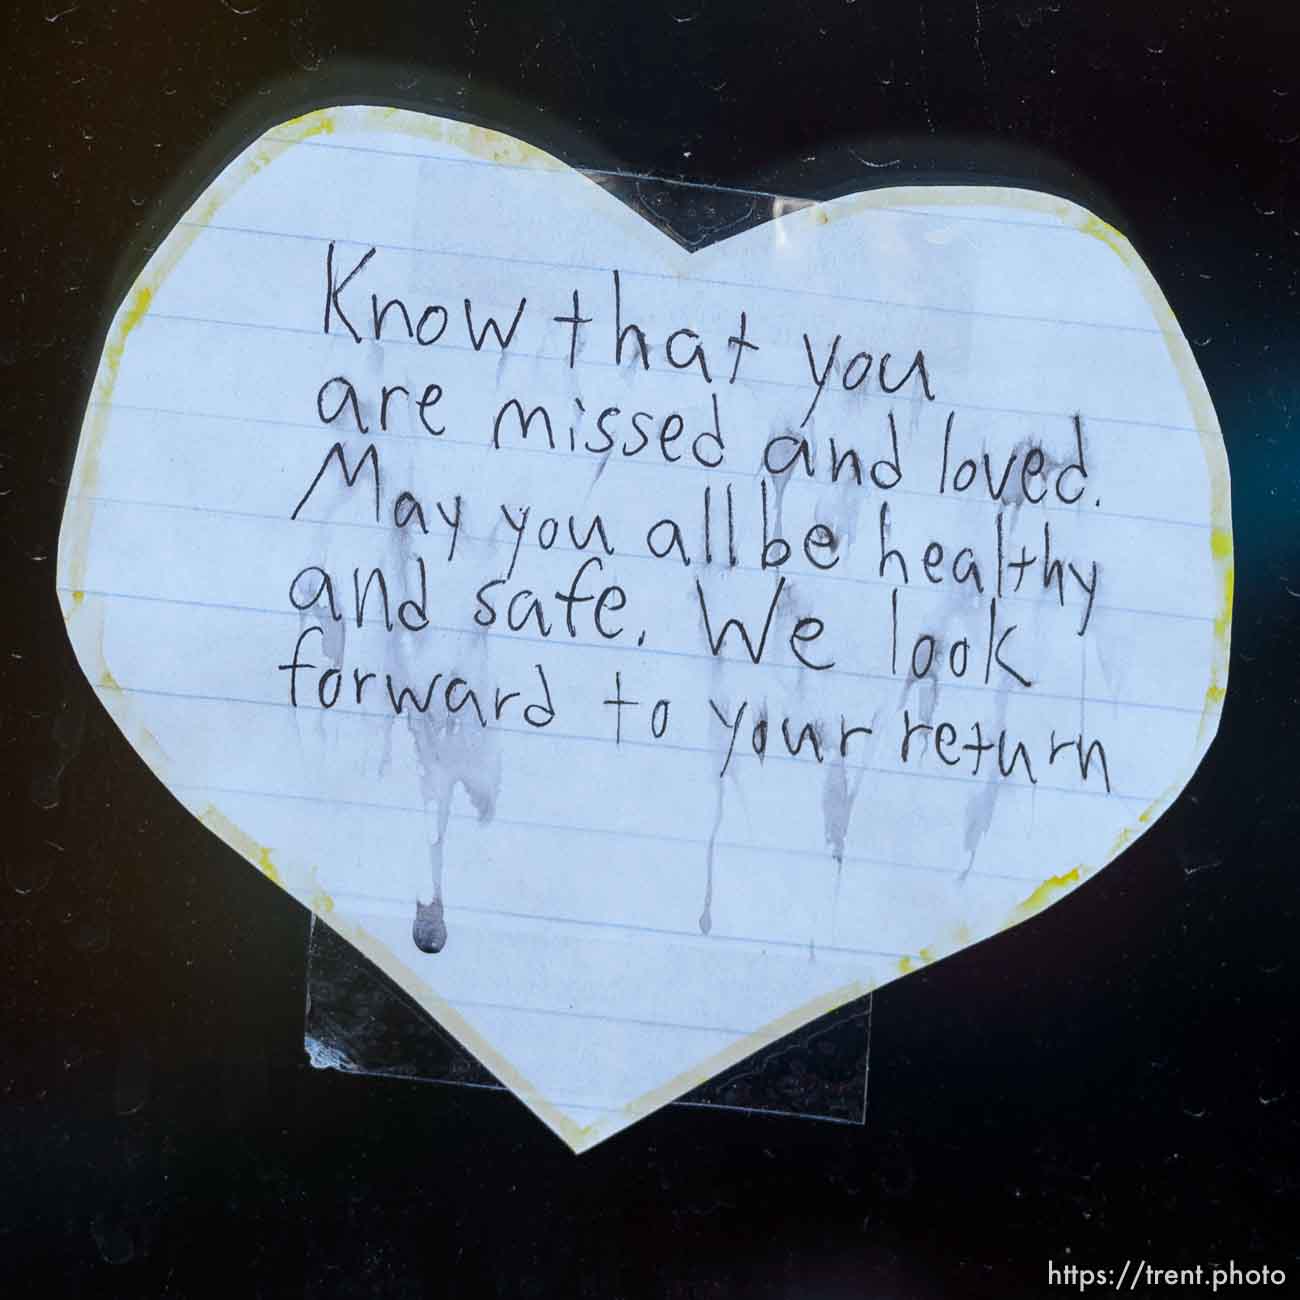 Know that you
are missed and loved.
May you all be healthy
and safe. We look
forward to your return
https://trent.photo